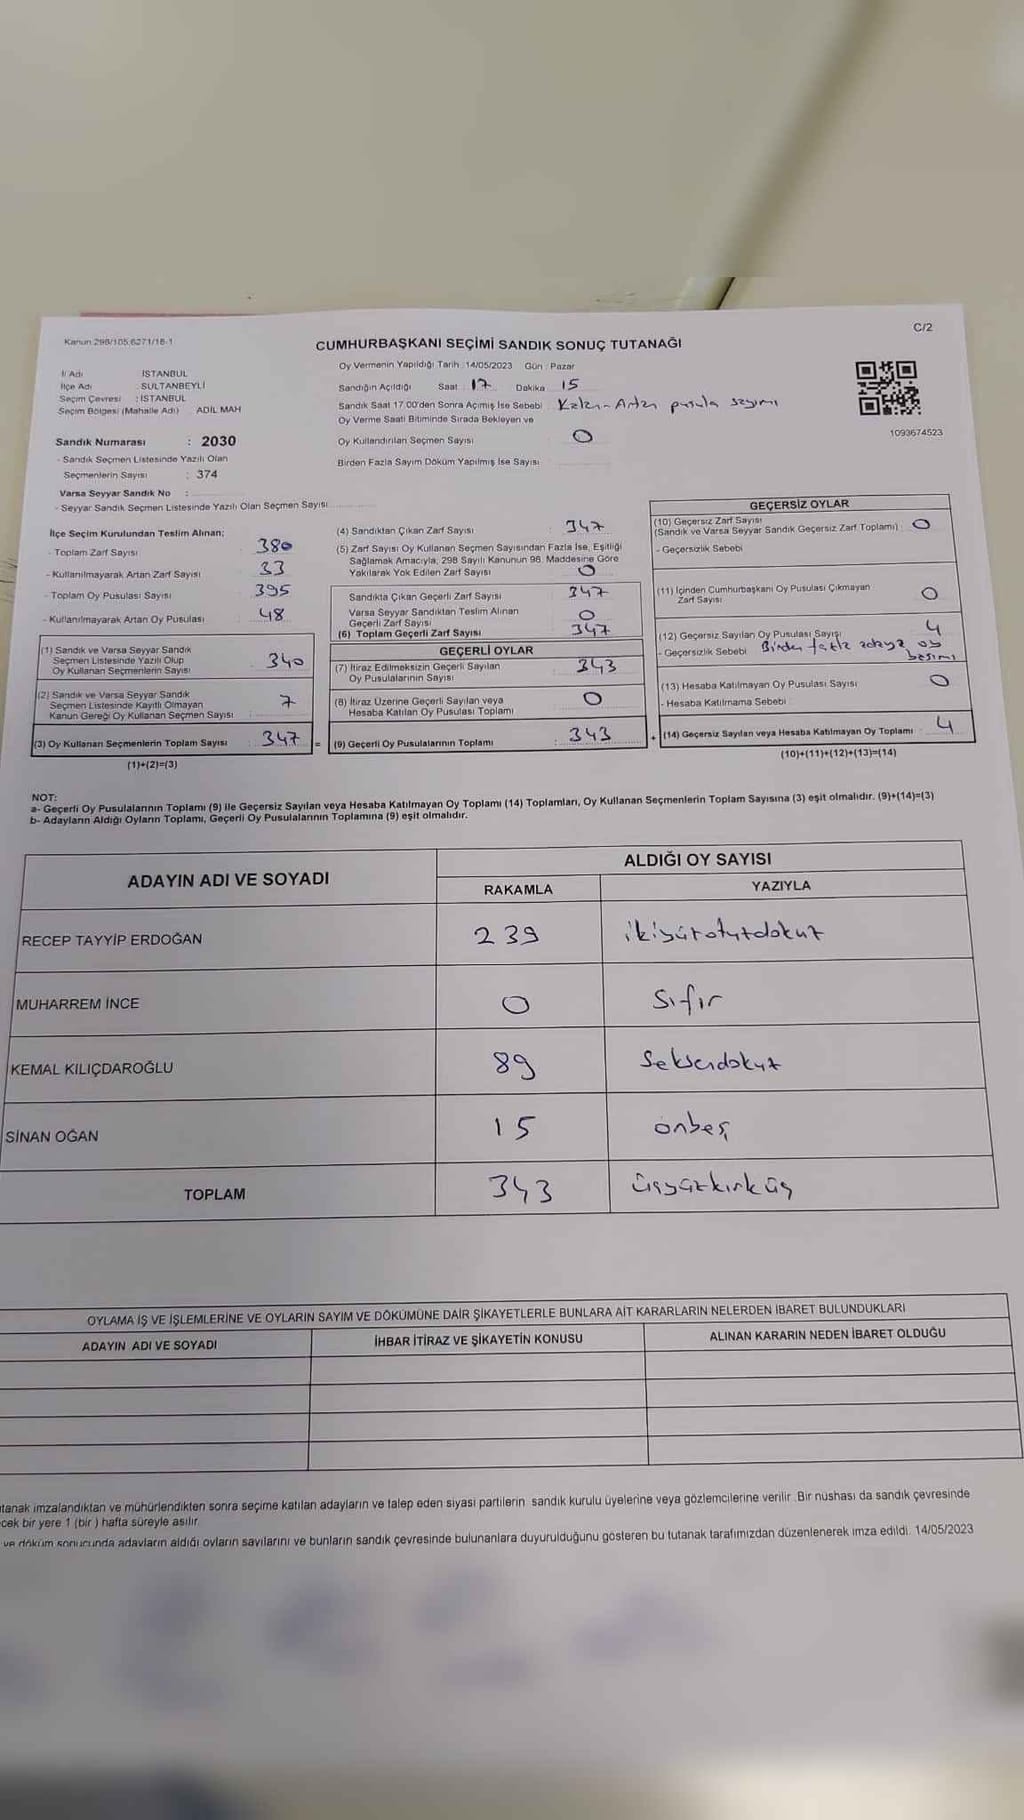 C/2
Kanun:298/105,6271/18-1
CUMHURBAŞKANI SEÇİMİ SANDIK SONUÇ TUTANAĞI
İl Adı : İSTANBUL
İlçe Adı : SULTANBEYLİ
Seçim Çevresi : İSTANBUL
Seçim Bölgesi (Mahalle Adı) ADİL MAH
Sandık Numarası : 2030
- Sandık Seçmen Listesinde Yazılı Olan
Seçmenlerin Sayısı : 374
Varsa Seyyar Sandık No :
- Seyyar Sandık Seçmen Listesinde Yazılı Olan Seçmen Sayısı
Oy Vermenin Yapıldığı Tarih : 14/05/2023 Gün : Pazar
Sandığın Açıldığı Saat : 17 Dakika 15
Sandık Saat 17.00'den Sonra Açımış İse Sebebi Kalan-Artan pusula sayımı
Oy Verme Saati Bitiminde Sırada Bekleyen ve
Oy Kullandırılan Seçmen Sayısı 0
Birden Fazla Sayım Döküm Yapılmış İse Sayısı
1093674523
İlçe Seçim Kurulundan Teslim Alınan;
- Toplam Zarf Sayısı 380
- Kullanılmayarak Artan Zarf Sayısı 33
- Toplam Oy Pusulası Sayısı 395
- Kullanılmayarak Artan Oy Pusulası 48
(1) Sandık ve Varsa Seyyar Sandık
Seçmen Listesinde Yazılı Olup
Oy Kullanan Seçmenlerin Sayısı 340
(2) Sandık ve Varsa Seyyar Sandık
Seçmen Listesinde Kayıtlı Olmayan
Kanun Gereği Oy Kullanan Seçmen Sayısı 7
(3) Oy Kullanan Seçmenlerin Toplam Sayısı : 347 =
(1)+(2)=(3)
(4) Sandıktan Çıkan Zarf Sayısı : 347
(5) Zarf Sayısı Oy Kullanan Seçmen Sayısından Fazla İse, Eşitliği
Sağlamak Amacıyla, 298 Sayılı Kanunun 98. Maddesine Göre
Yakılarak Yok Edilen Zarf Sayısı 0
Sandıkta Çıkan Geçerli Zarf Sayısı 347
Varsa Seyyar Sandıktan Teslim Alınan
Geçerli Zarf Sayısı 0
(6) Toplam Geçerli Zarf Sayısı 347
GEÇERLİ OYLAR
(7) İtiraz Edilmeksizin Geçerli Sayılan
Oy Pusulalarının Sayısı 343
(8) İtiraz Üzerine Geçerli Sayılan veya
Hesaba Katılan Oy Pusulası Toplamı 0
(9) Geçerli Oy Pusulalarının Toplamı : 343 +
GEÇERSİZ OYLAR
(10) Geçersiz Zarf Sayısı
(Sandık ve Varsa Seyyar Sandık Geçersiz Zarf Toplamı) : 0
- Geçersizlik Sebebi
(11) İçinden Cumhurbaşkanı Oy Pusulası Çıkmayan
Zarf Sayısı 0
(12) Geçersiz Sayılan Oy Pusulası Sayısı 4
- Geçersizlik Sebebi Birden fazla adaya oy
basımı
(13) Hesaba Katılmayan Oy Pusulası Sayısı 0
- Hesaba Katılmama Sebebi
(14) Geçersiz Sayılan veya Hesaba Katılmayan Oy Toplamı 4
(10)+(11)+(12)+(13)=(14)
NOT:
a- Geçerli Oy Pusulalarının Toplamı (9) ile Geçersiz Sayılan veya Hesaba Katılmayan Oy Toplamı (14) Toplamları, Oy Kullanan Seçmenlerin Toplam Sayısına (3) eşit olmalıdır. (9)+(14)=(3)
b- Adayların Aldığı Oyların Toplamı, Geçerli Oy Pusulalarının Toplamına (9) eşit olmalıdır.
ADAYIN ADI VE SOYADI
ALDIĞI OY SAYISI
RAKAMLA YAZIYLA
RECEP TAYYİP ERDOĞAN 239 ikiyüzotuzdokuz
MUHARREM İNCE 0 Sıfır
KEMAL KILIÇDAROĞLU 89 Seksendokuz
SİNAN OĞAN 15 onbeş
TOPLAM 343 üçyüzkırküç
OYLAMA İŞ VE İŞLEMLERİNE VE OYLARIN SAYIM VE DÖKÜMÜNE DAİR ŞİKAYETLERLE BUNLARA AİT KARARLARIN NELERDEN İBARET BULUNDUKLARI
ADAYIN ADI VE SOYADI İHBAR İTİRAZ VE ŞİKAYETİN KONUSU ALINAN KARARIN NEDEN İBARET OLDUĞU
utanak imzalandıktan ve mühürlendikten sonra seçime katılan adayların ve talep eden siyasi partilerin sandık kurulu üyelerine veya gözlemcilerine verilir. Bir nüshası da sandık çevresinde
cek bir yere 1 (bir ) hafta süreyle asılır.
ve döküm sonucunda adayların aldığı oyların sayılarını ve bunların sandık çevresinde bulunanlara duyurulduğunu gösteren bu tutanak tarafımızdan düzenlenerek imza edildi. 14/05/2023